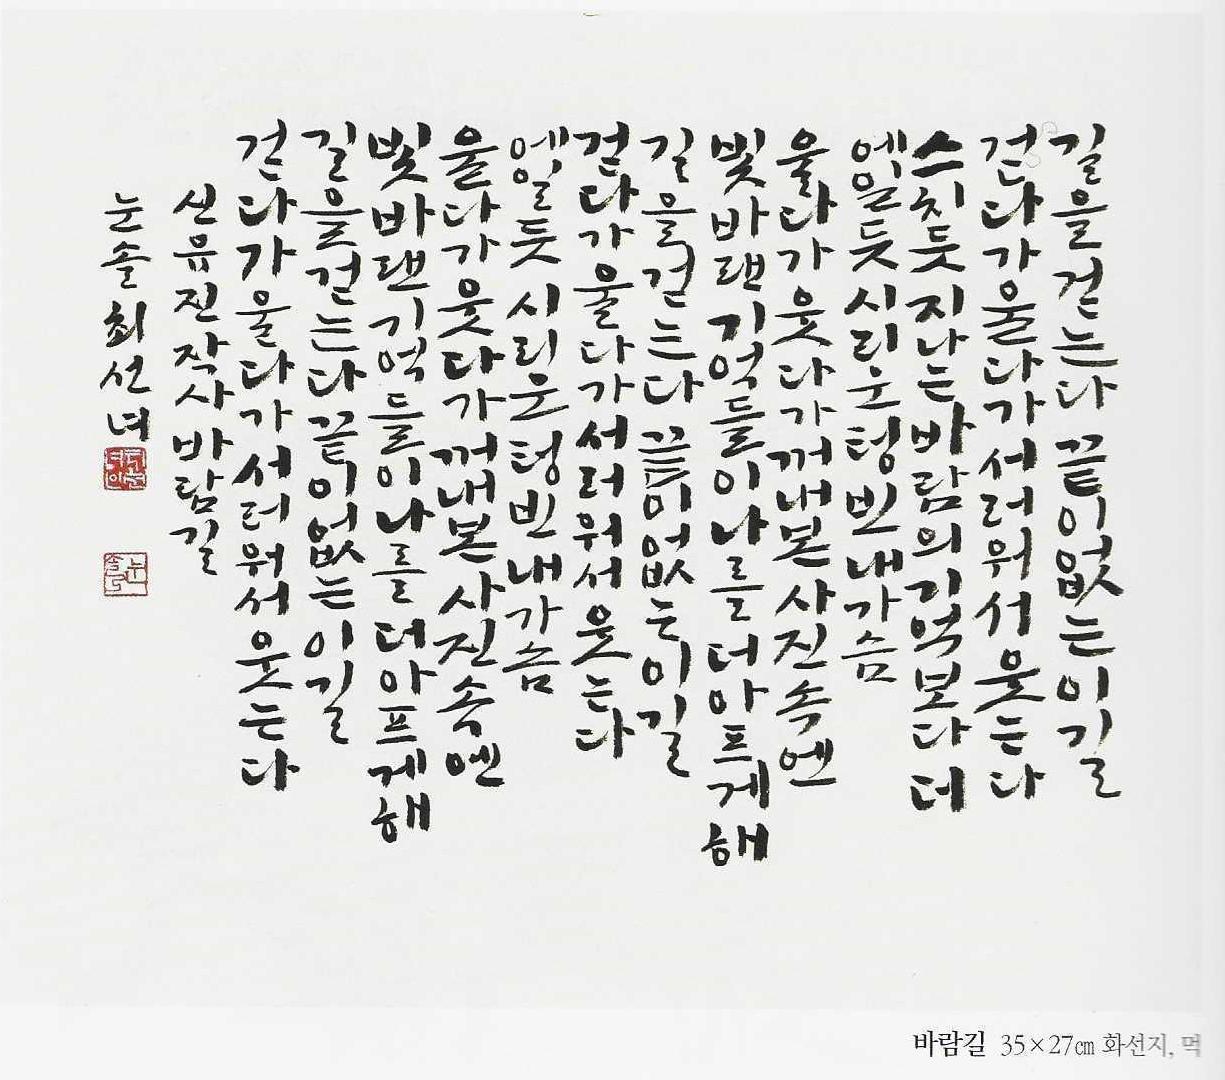 길을 걷는다 끝이 없는 이 길
걷다가 울다가 서러워서 웃는다
스치듯 지나는 바람의 기억보다 더
에일듯 시리운 텅 빈 내 가슴
울다가 웃다가 꺼내 본 사진 속엔
빛바랜 기억들이 나를 더 아프게 해
길을 걷는다 끝이 없는 이 길
걷다가 울다가 서러워서 웃는다
에일듯 시리운 텅 빈 내 가슴
울다가 웃다가 꺼내 본 사진 속엔
빛바랜 기억들이 나를 더 아프게 해
길을 걷는다 끝이 없는 이 길
걷다가 울다가 서러워서 웃는다
신유진 작사 바람길
눈솔 최선녀
바람길 35×27㎝ 화선지, 먹